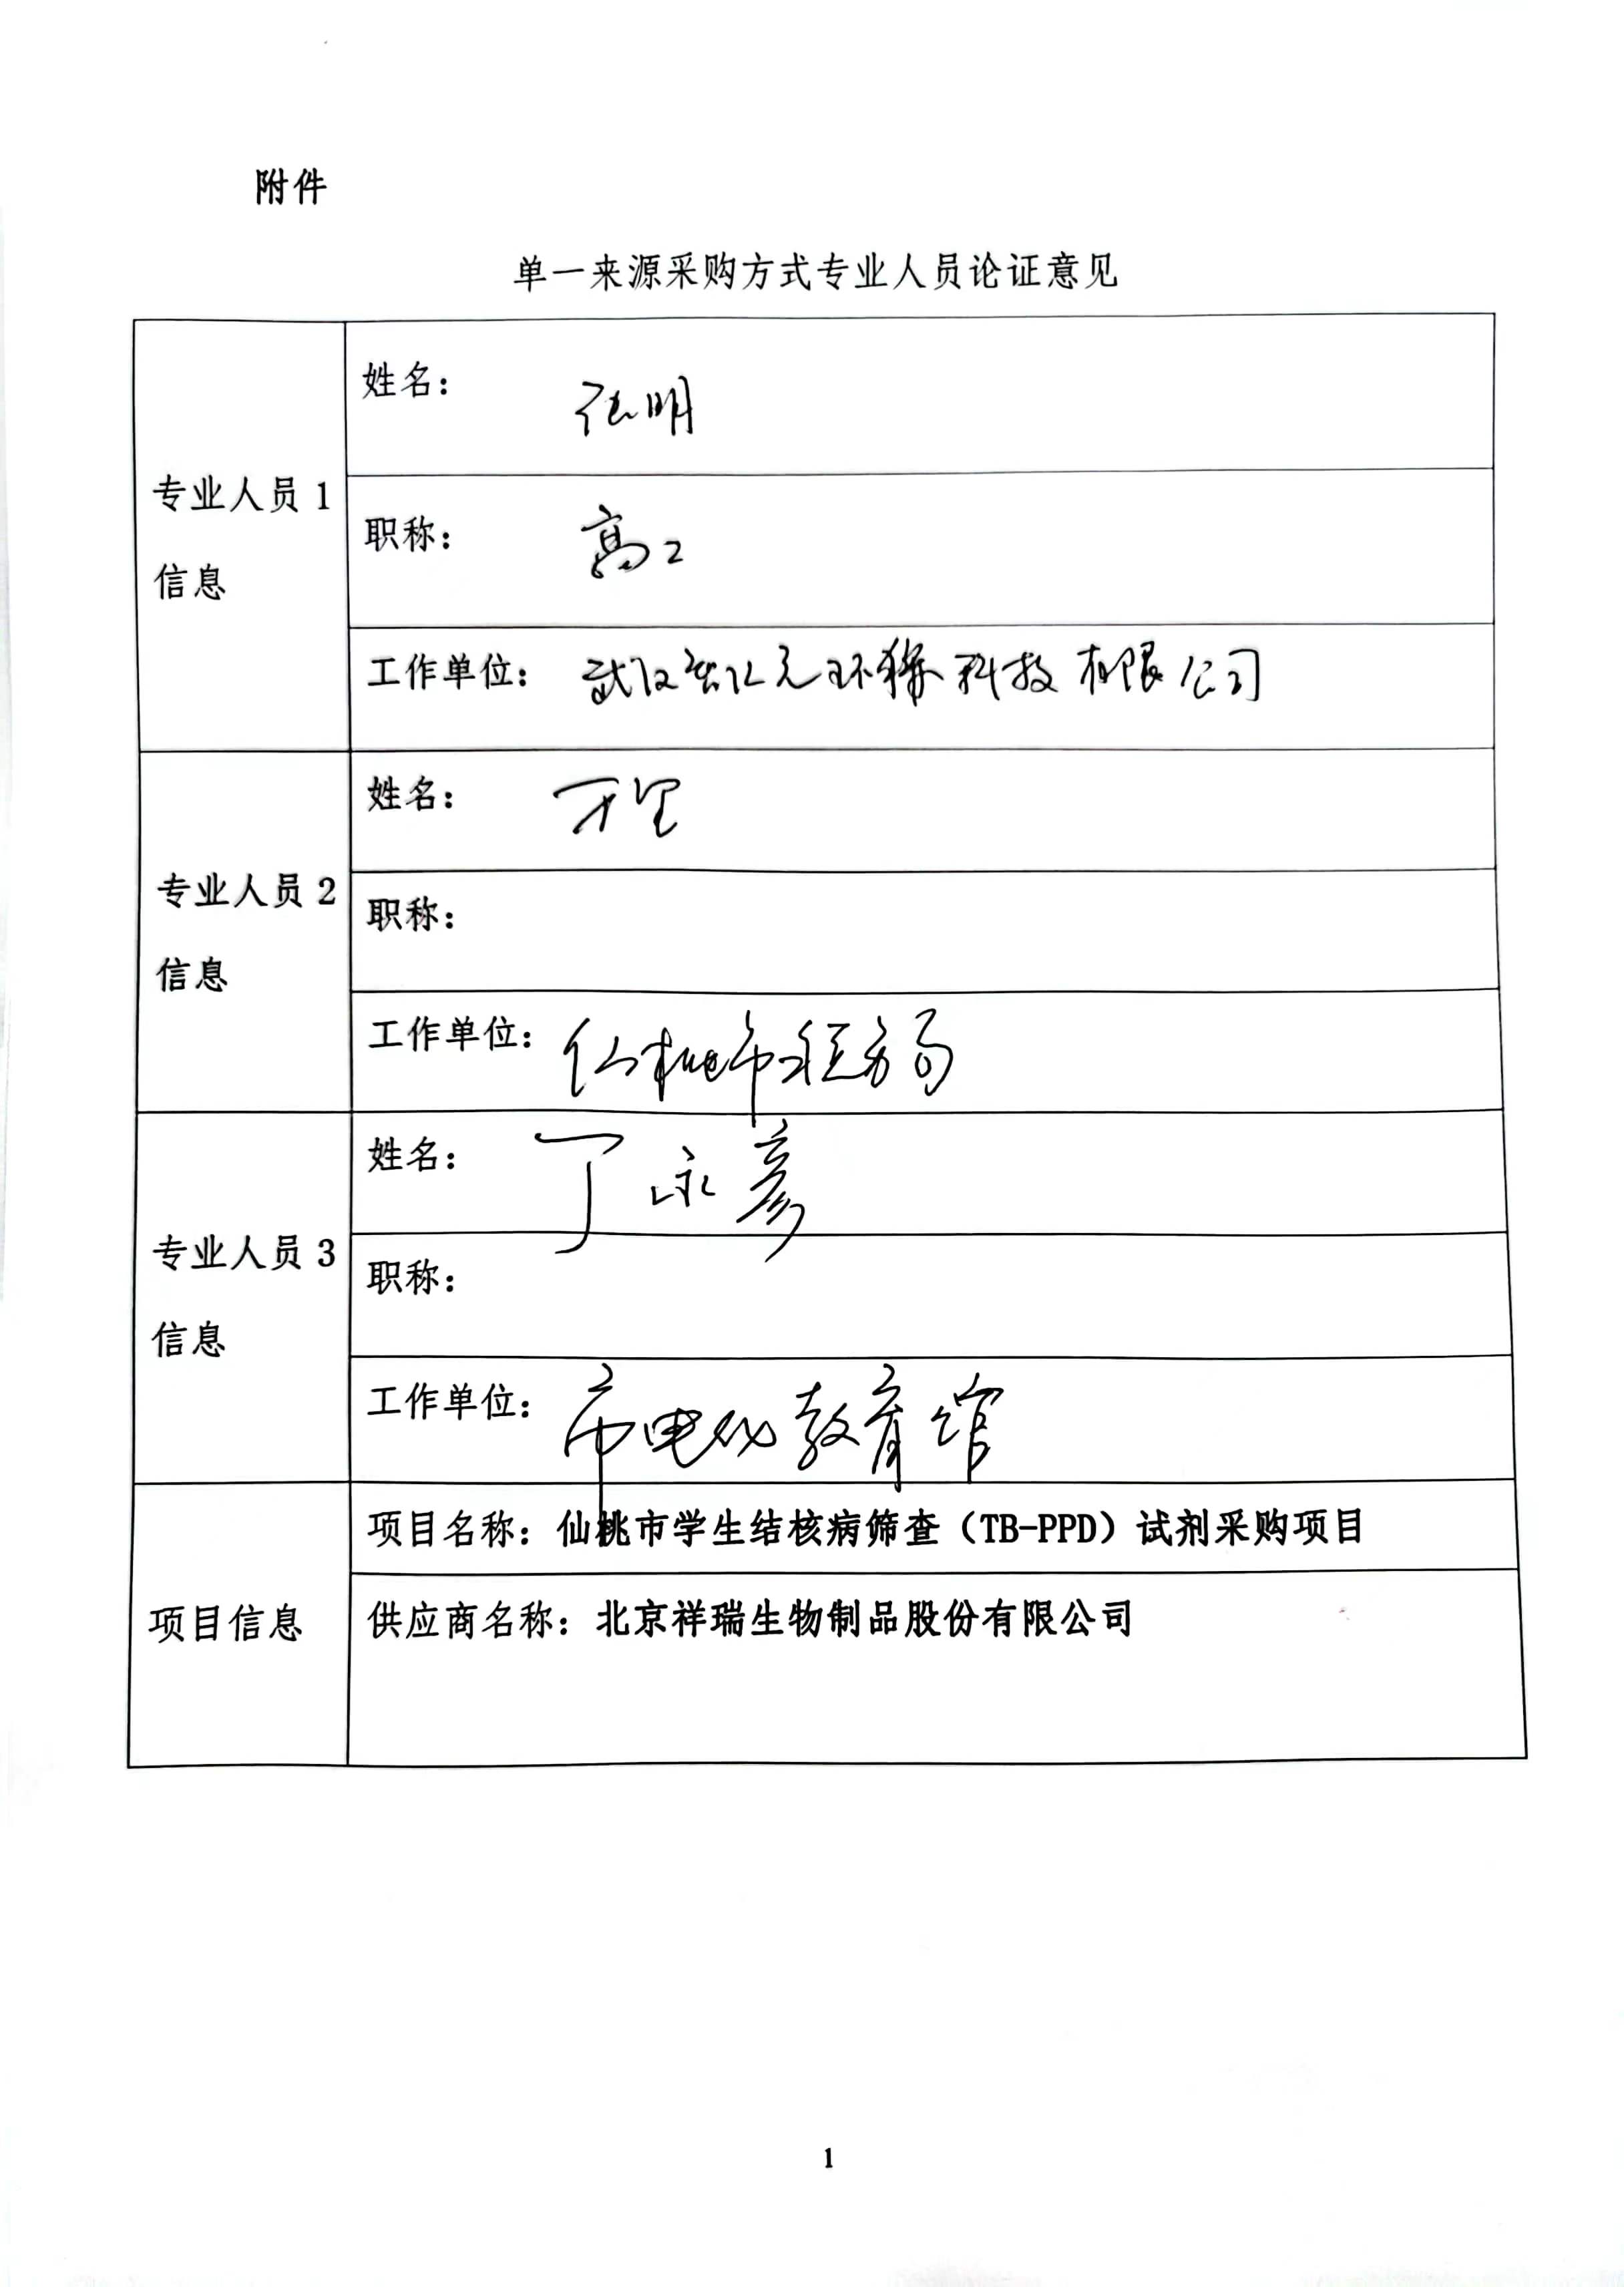 附件
单一来源采购方式专业人员论证意见
专业人员1
信息
姓名：
张明
职称：
高工
工作单位：
武汉宏亿元环保科技有限公司
专业人员2
信息
姓名：
职称：
工作单位：
仙桃市税务局
专业人员3
信息
姓名：
丁永彦
职称：
工作单位：
市电化教育馆
项目信息
项目名称：仙桃市学生结核病筛查（TB-PPD）试剂采购项目
供应商名称：北京祥瑞生物制品股份有限公司
1